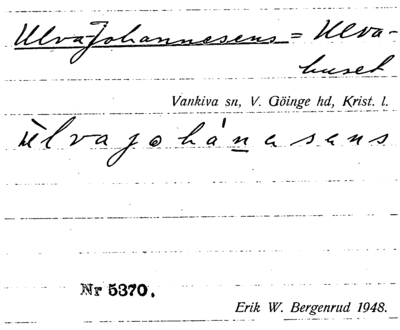 Ulva-Johannesens = Ulva-
huset
Vankiva sn, V. Göinge hd, Krist. l.
ulvajohánasens
Nr 5370.
Erik W. Bergenrud 1948.